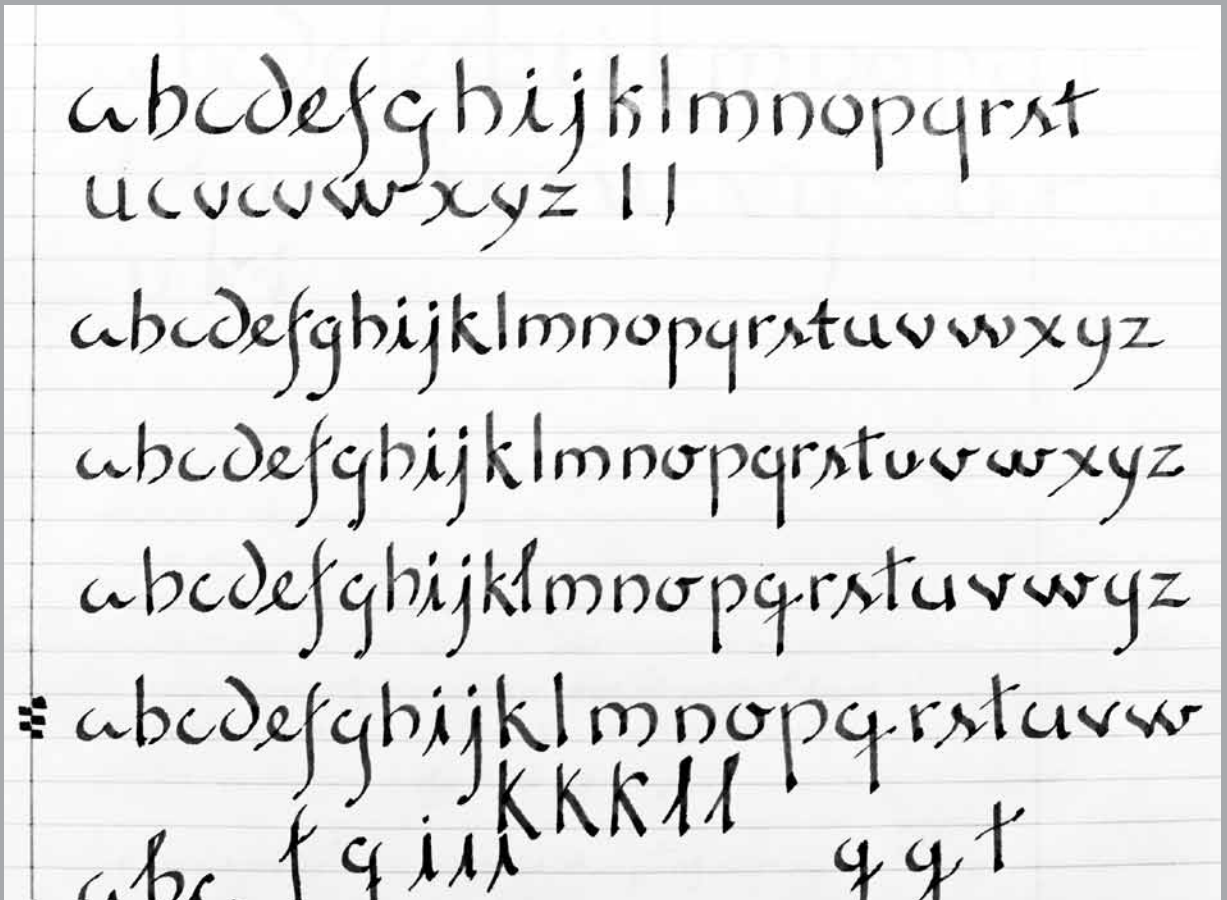 abcdefghijklmnopqrst
ucvcvwxyz ll
abcdefghijklmnopqrstuvwxyz
abcdefghijklmnopqrstuvwxyz
abcdefghijklmnopqrstuvwyz
abcdefghijklmnopqrstuvw
kkkll
abc f q iii q q t